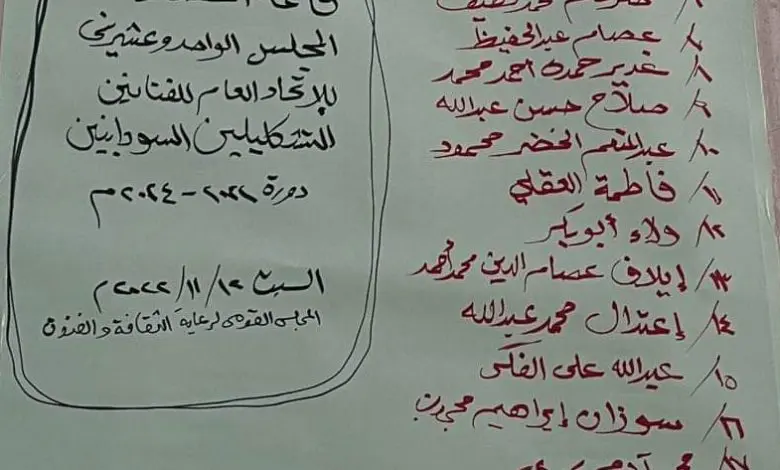 عصام عبدالحفيظ
٨/ غدير حمدة احمد محمد
٩/ صلاح حسن عبدالله
١٠/ عبدالمنعم الخضر محمود
١١/ فاطمة العقلي
١٢/ ولاء أبوبكر
١٣/ إيلاف عصام الدين محمد أحمد
١٤/ إعتدال محمد عبدالله
١٥/ عبدالله على الفكى
١٦/ سوزان إبراهيم
المجلس الواحد وعشرين
للإتحاد العام للفنانين
التشكيليين السودانيين
دورة ٢٠٢٢ - ٢٠٢٤م
السبت ١٢/١١/٢٠٢٢م
المجلس القومى لرعاية الثقافة والفنون